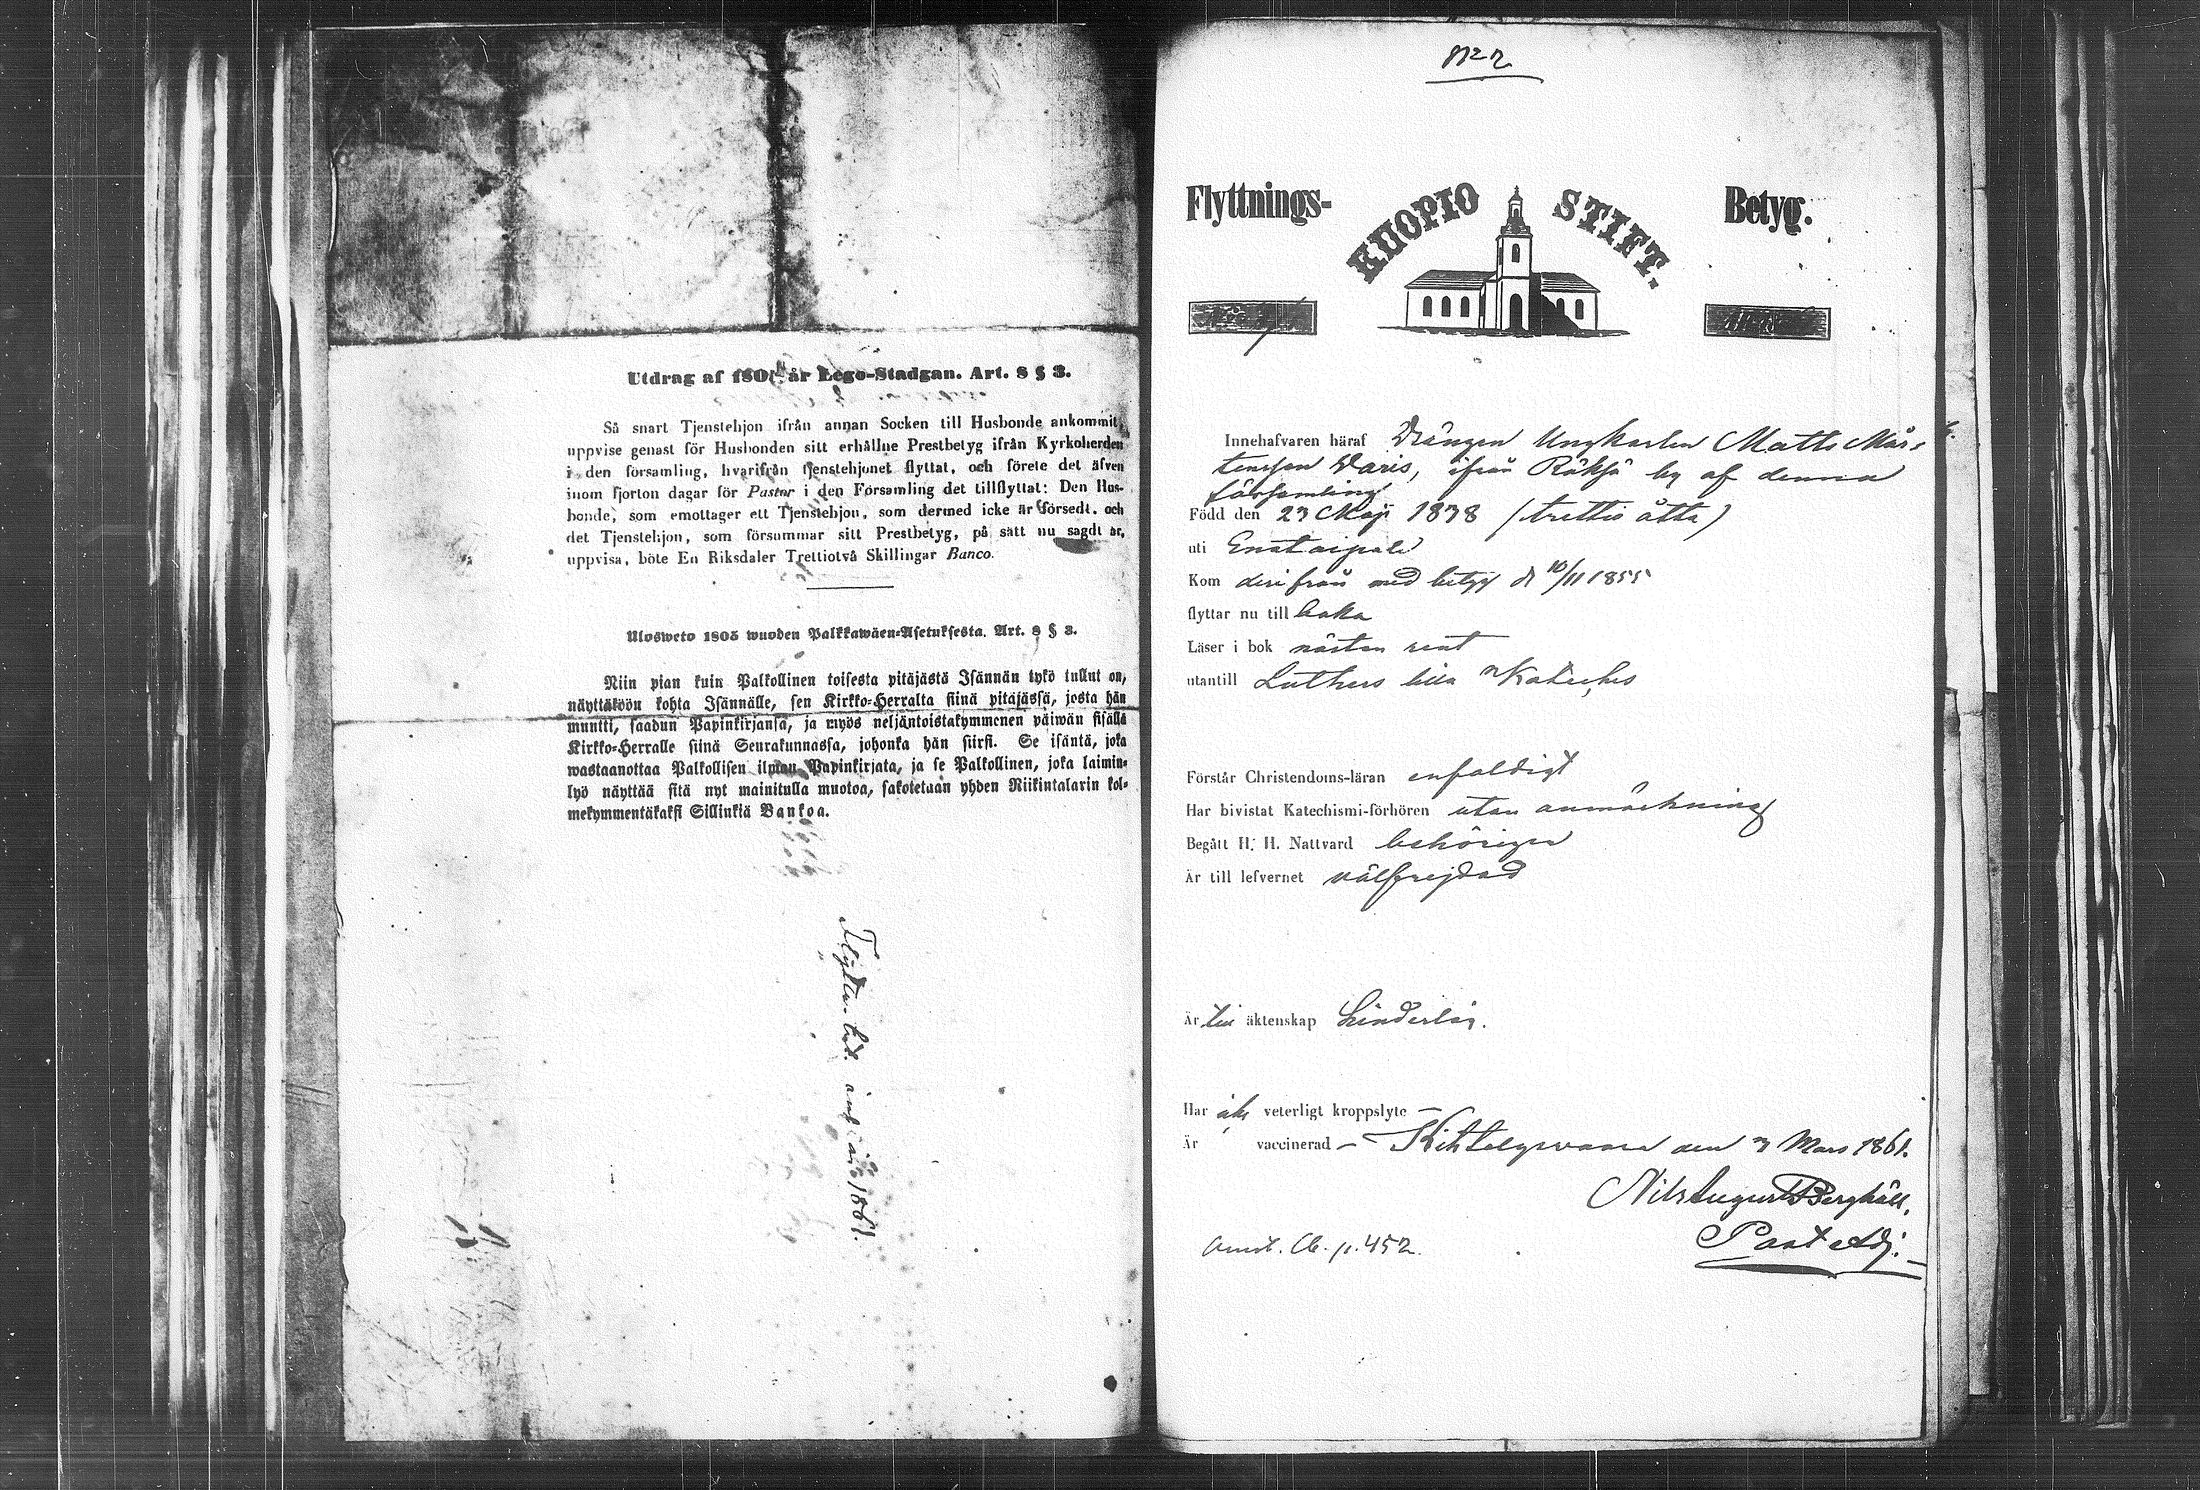 Utdrag af 1805 år Lego-Stadgan. Art. 8 § 3.
Så snart Tjenstehjon ifrån annan Socken till Husbonde ankommit,
uppvise genast för Husbonden sitt erhållne Prestbetyg ifrån Kyrkoherden
i den församling, hvarifrån tjenstehjonet flyttat, och förete det äfven
inom fjorton dagar för Pastor i den Församling det tillflyttat: Den Hus-
bonde, som emottager ett Tjenstehjon, som dermed icke är försedt, och
det Tjenstehjon, som försummar sitt Prestbetyg, på sätt nu sagdt är,
uppvisa, böte En Riksdaler Trettiotvå Skillingar Banco.
Ulosweto 1805 wuoden Palkkawäen-Asetuksesta. Art. 8 § 3.
Niin pian kuin Palkollinen toisesta pitäjästä Isännän tykö tullut on,
näyttäköön kohta Isännälle, sen Kirkko-Herralta siinä pitäjässä, josta hän
muutti, saadun Papinkirjansa, ja myös neljäntoistakymmenen päiwän sisällä
Kirkko-Herralle siinä Seurakunnassa, johonka hän siirsi. Se isäntä, joka
wastaanottaa Palkollisen ilman Papinkirjata, ja se Palkollinen, joka laimin-
lyö näyttää sitä nyt mainitulla muotoa, sakotetaan yhden Riikintalarin kol-
mekymmentäkaksi Sillinkiä Bankoa.
1861.
Flyttnings- KUOPIO STIFT. Betyg.
Innehafvaren häraf Drängen Ungkarlen Matts Mår-
tensson Daris, ifrån Röksä by af denna
församling
Född den 23 Maji 1838 (trettio åtta)
uti
Kom derifrån med betyg d 10/11 1855
flyttar nu till baka
Läser i bok nästan rent
utantill Luthers lilla Kateches
Förstår Christendoms-läran enfaldigt
Har bivistat Katechismi-förhören utan anmärkning
Begått H. H. Nattvard behörigen
Är till lefvernet välfrejdad
Är till äktenskap hinderlös.
Har icke veterligt kroppslyte —
Är vaccinerad — Kihtelysvaara den 3 Mars 1861.
Nils August Berghäll,
Past. Adj.
p. 452.